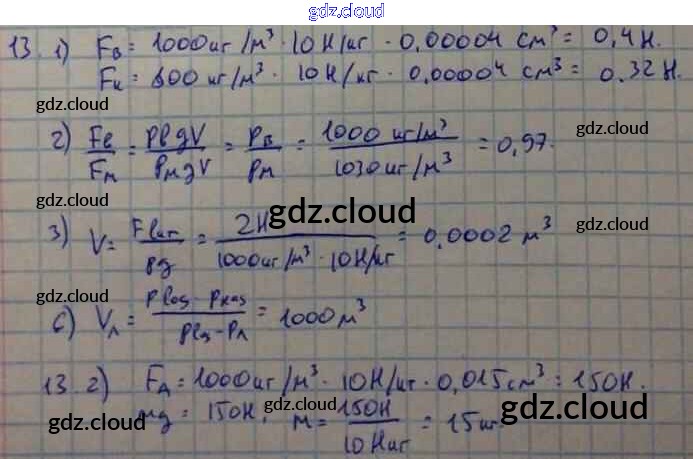 gdz.cloud
13. 1) Fв = 1000 кг/м³ · 10 Н/кг · 0,00004 см³ = 0,4 Н.
Fк = 800 кг/м³ · 10 Н/кг · 0,00004 см³ = 0.32 Н.
gdz.cloud gdz.cloud
2) Fв/Fм = ρвgV/ρмgV = ρв/ρм = 1000 кг/м³ / 1030 кг/м³ = 0,97.
gdz.cloud
gdz.cloud
3) V = / ρg = 2Н / 1000 кг/м³ · 10 Н/кг = 0,0002 м³
gdz.cloud gdz.cloud
gdz.cloud
6) Vл = / = 1000 м³
13. 2) FА = 1000 кг/м³ · 10 Н/кг · 0,015 см³ = 150 Н.
mg = 150 Н, m = 150 Н / 10 Н/кг = 15 кг
gdz.cloud gdz.cloud gdz.cloud